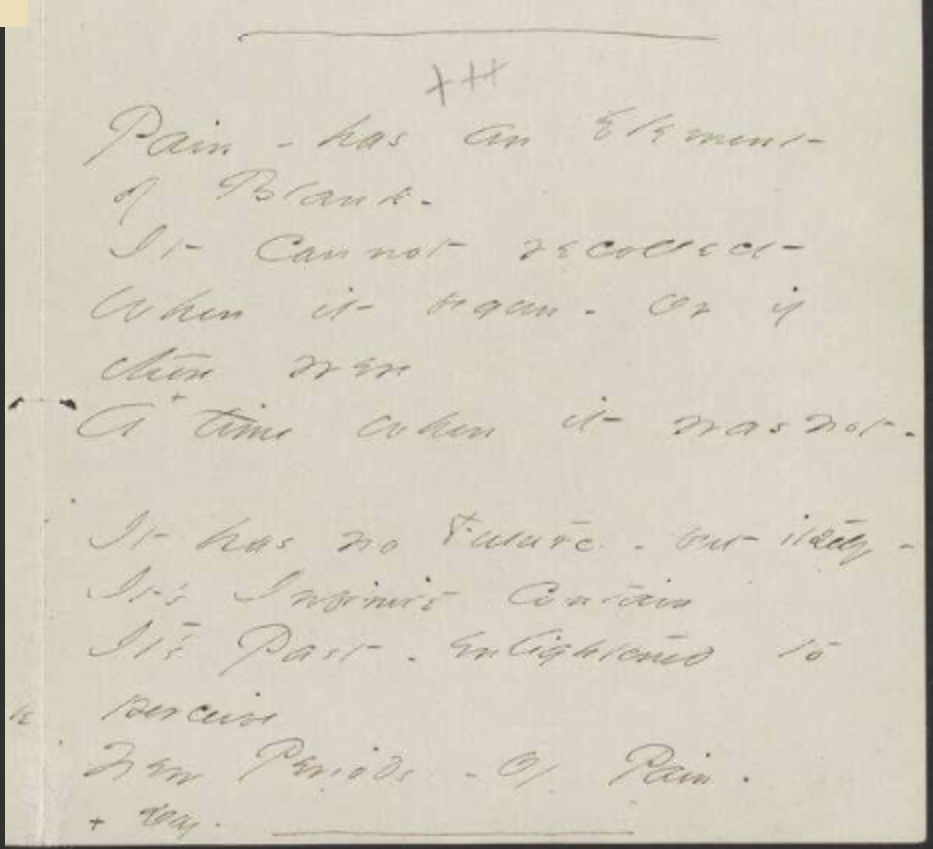 Pain - has an Element
of Blank -
It cannot recollect
When it began - Or if
there were
A + time when it was not -
It has no Future - but itself -
It's Infinite contain
It's Past - enlightened to
perceive
New Periods - Of Pain.
+ Day -